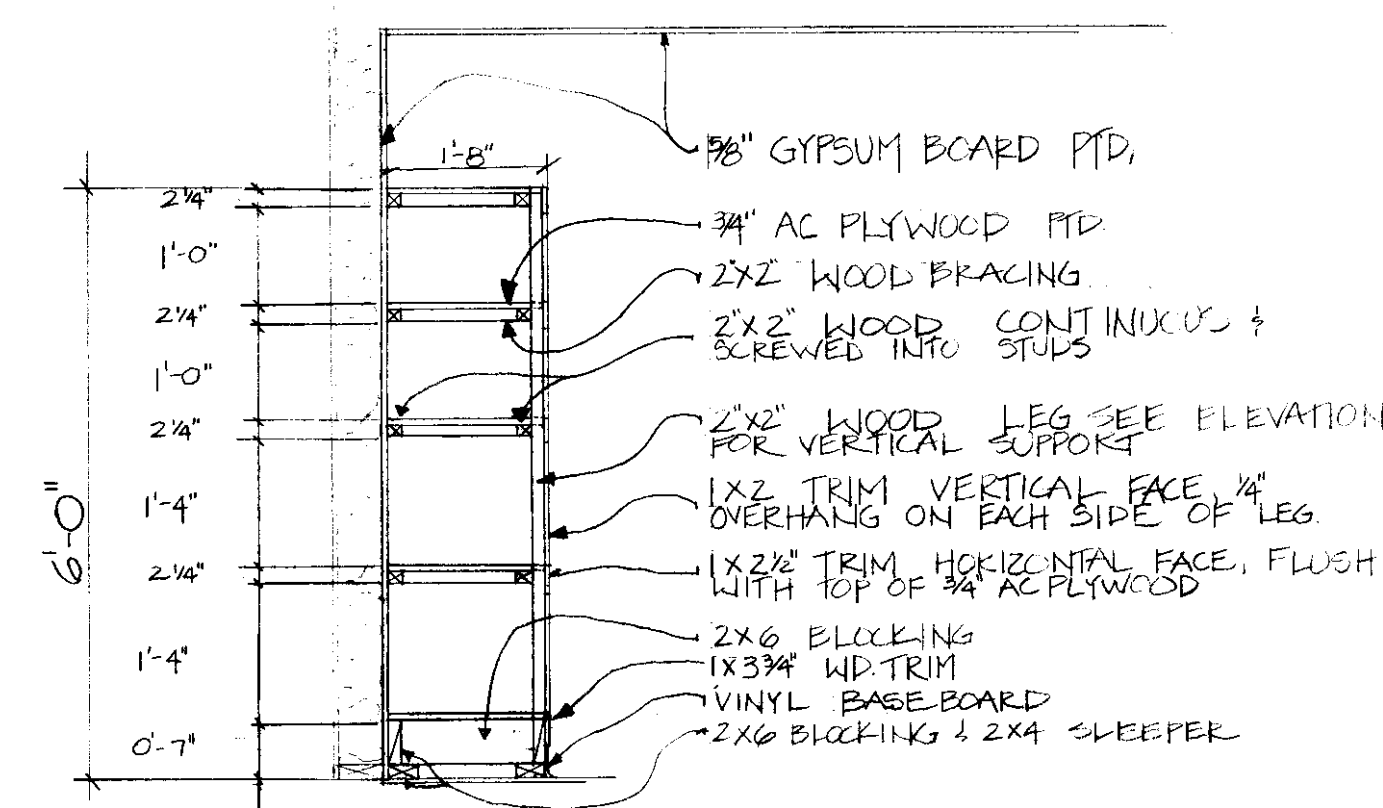 5/8" GYPSUM BOARD PTD,
1'-8"
2 1/4"
3/4" AC PLYWOOD PTD.
1'-0"
2"X2" WOOD BRACING
2 1/4"
2"X2" WOOD CONTINUOUS &
SCREWED INTO STUDS
1'-0"
2 1/4"
2"X2" WOOD LEG SEE ELEVATION
FOR VERTICAL SUPPORT
1'-4"
1X2 TRIM VERTICAL FACE, 1/4"
OVERHANG ON EACH SIDE OF LEG.
6'-0"
2 1/4"
1X2 1/2" TRIM HORIZONTAL FACE, FLUSH
WITH TOP OF 3/4" AC PLYWOOD
2X6 BLOCKING
1'-4"
1X3 3/4" WD. TRIM
VINYL BASEBOARD
0'-7"
2X6 BLOCKING & 2X4 SLEEPER